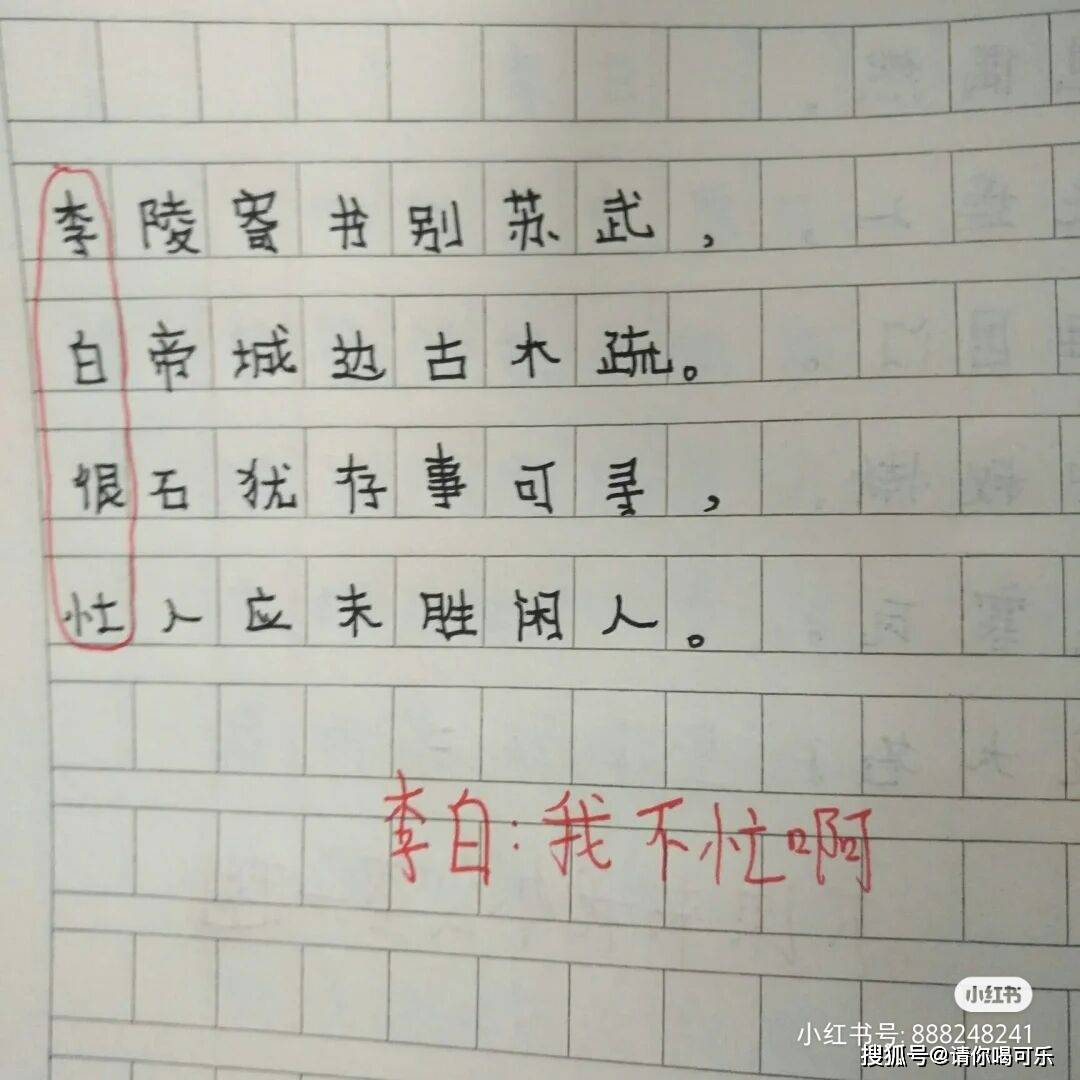 李陵寄书别苏武，
白帝城边古木疏。
恨石犹存事可寻，
忙人应未胜闲人。
李白：我不忙啊
小红书
小红书号: 888248241
搜狐号@请你喝可乐